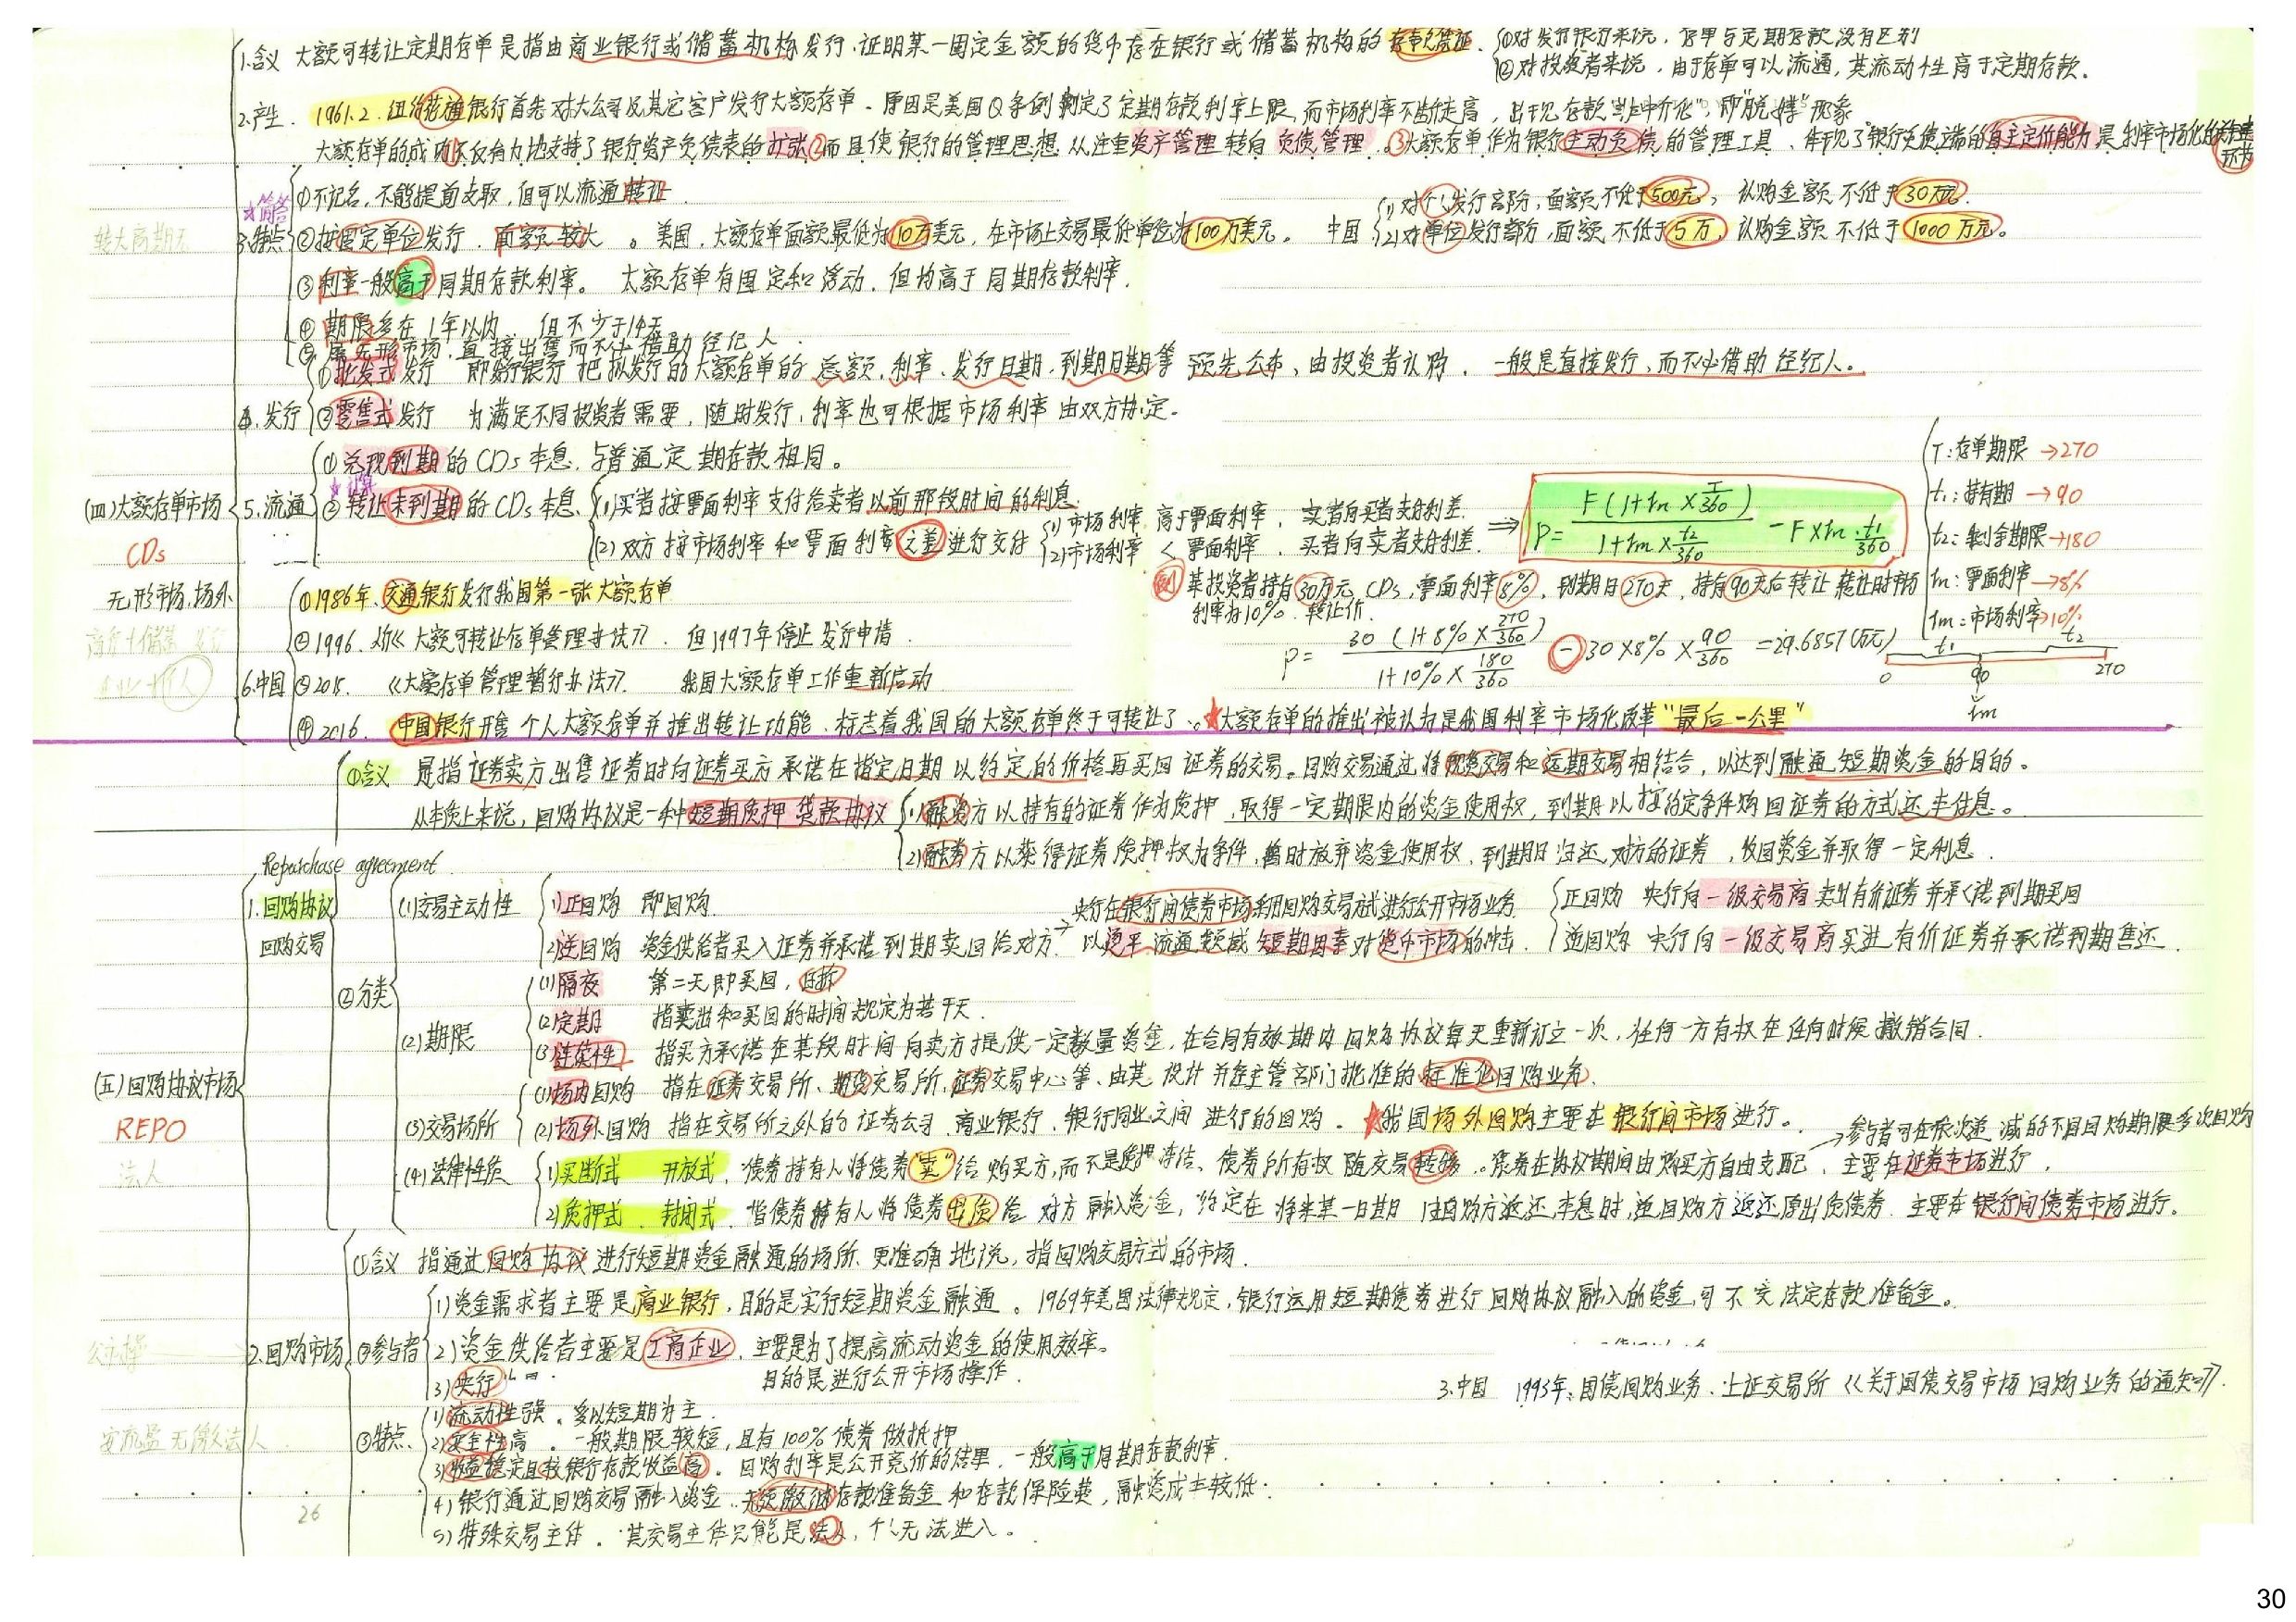 1.含义 大额可转让定期存单是指由商业银行或储蓄机构发行、证明某一固定金额的货币存在银行或储蓄机构的存单凭证.
①对发行银行来说,存单与定期存款没有区别
②对投资者来说,由于存单可以流通,其流动性高于定期存款.
2.产生. 1961.2.纽约花旗银行首先对大公司及其它客户发行大额存单. 原因是美国Q条例制定了定期存款利率上限,而市场利率不断走高,出现存款"非中介化",即"脱媒"现象
大额存单的成功①不仅有力地支持了银行资产负债表的扩张②而且使银行的管理思想从注重资产管理转向负债管理.③大额存单作为银行主动负债的管理工具、体现了银行负债端的自主定价能力是利率市场化的关键环节
☆简答
①不记名,不能提前支取,但可以流通转让.
转大高期无
3.特点 ②按固定单位发行,面额较大。美国,大额存单面额最低为10万美元,在市场上交易最低单位为100万美元。
中国 (1)对个人发行部分,面额不低于500元,认购金额不低于30万元.
(2)对单位发行部分,面额不低于5万,认购金额不低于1000万元。
③利率一般高于同期存款利率。 大额存单有固定和浮动,但均高于同期存款利率.
④期限多在1年以内 但不少于14天
⑤属无形市场,直接出售而不必借助经纪人.
4.发行 ①批发式发行 即发行银行把拟发行的大额存单的总额、利率、发行日期、到期日期等预先公布、由投资者认购. 一般是直接发行,而不必借助经纪人。
②零售式发行 为满足不同投资者需要,随时发行,利率也可根据市场利率由双方协定。
(四)大额存单市场
CDs
无形市场.场外
5.流通 ①兑现到期的CDs本息,与普通定期存款相同。
☆计算
②转让未到期的CDs本息、(1)买者按票面利率支付给卖者以前那段时间的利息.
(2)双方按市场利率和票面利率之差进行交付 (1)市场利率高于票面利率,卖者向买者支付利差.
(2)市场利率<票面利率,买者向卖者支付利差.
⇒ P= F(1+rn×T/360) / 1+rm×t2/360 - F×rn·t1/360
T:存单期限→270
t1:持有期→90
t2:剩余期限→180
rn:票面利率→8%
rm:市场利率→10%
例 某投资者持有30万元CDs,票面利率8%,到期日270天,持有90天后转让 转让时市场利率为10%. 转让价.
P= 30(1+8%×270/360) / 1+10%×180/360 - 30×8%×90/360 =29.6857(万元)
t1 t2
0 90 270
rm
6.中国 ①1986年、交通银行发行我国第一张大额存单
②1996. 《大额可转让存单管理办法》. 但1997年停止发行申请.
③2015. 《大额存单管理暂行办法》. 我国大额存单工作重新启动
④2016. 中国银行开售个人大额存单并推出转让功能、标志着我国的大额存单终于可转让了。★大额存单的推出被认为是我国利率市场化改革"最后一公里"
(五)回购协议市场
REPO
法人
Repurchase agreement.
1.回购协议
回购交易
①含义 是指证券卖方出售证券时向证券买方承诺在指定日期以约定的价格再买回证券的交易。回购交易通过将现货交易和远期交易相结合,以达到融通短期资金的目的。
从本质上来说,回购协议是一种短期质押贷款协议 (1)融资方以持有的证券作为质押,取得一定期限内的资金使用权,到期以按约定条件购回证券的方式还本付息。
(2)融券方以获得证券质押权为条件,暂时放弃资金使用权,到期日归还对方的证券,收回资金并取得一定利息.
②分类
(1)交易主动性 (1)正回购 即回购.
(2)逆回购 资金供给者买入证券并承诺到期卖回给对方.
→央行在银行间债券市场采用回购交易方式进行公开市场业务.以烫平流通领域短期因素对货币市场的冲击.
正回购 央行向一级交易商卖出有价证券并承诺到期买回
逆回购 央行向一级交易商买进有价证券并承诺到期售还.
(2)期限 (1)隔夜 第二天即买回,日拆
(2)定期 指卖出和买回的时间规定为若干天.
(3)连续性 指买方承诺在某段时间向卖方提供一定数量资金,在合同有效期内回购协议每天重新订立一次,任何一方有权在任何时候撤销合同.
(3)交易场所 (1)场内回购 指在证券交易所、期货交易所、证券交易中心等、由其设计并经主管部门批准的标准化回购业务.
(2)场外回购 指在交易所之外的证券公司、商业银行、银行同业之间进行的回购. ★我国场外回购主要在银行间市场进行。
→参与者可在依次递减的不同回购期限多次回购
(4)法律性质 (1)买断式 开放式. 债券持有人将债券"卖"给购买方,而不是质押冻结、债券所有权随交易转移. 债券在协议期间由购买方自由支配、主要在证券市场进行.
(2)质押式. 封闭式. 指债券持有人将债券出质给对方融入资金,约定在将来某一日期由正回购方返还本息时,逆回购方返还原出质债券. 主要在银行间债券市场进行。
2.回购市场 ①含义 指通过回购协议进行短期资金融通的场所、更准确地说,指回购交易方式的市场.
②参与者 (1)资金需求者主要是商业银行,目的是实行短期资金融通。1969年美国法律规定,银行运用短期债券进行回购协议融入的资金可不交法定存款准备金。
(2)资金供给者主要是工商企业,主要是为了提高流动资金的使用效率。
(3)央行 目的是进行公开市场操作.
3.中国 1993年:国债回购业务.上证交易所《关于国债交易市场回购业务的通知》.
③特点. (1)流动性强. 多以短期为主.
(2)安全性高. 一般期限较短,且有100%债券做抵押
(3)收益稳定且较银行存款收益高。回购利率是公开竞价的结果,一般高于同期存款利率.
(4)银行通过回购交易融入资金.无须缴纳存款准备金和存款保险费,融资成本较低.
(5)特殊交易主体. 其交易主体只能是法人,个人无法进入。
安流益无缴法人.
26
30